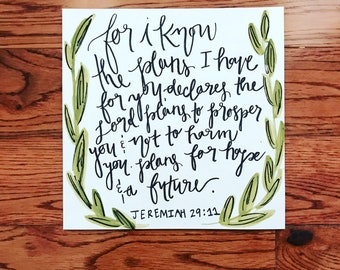 for i know
the plans I have
for you declares the
Lord plans to prosper
you & not to harm
you. plans for hope
& a future.
JEREMIAH 29:11